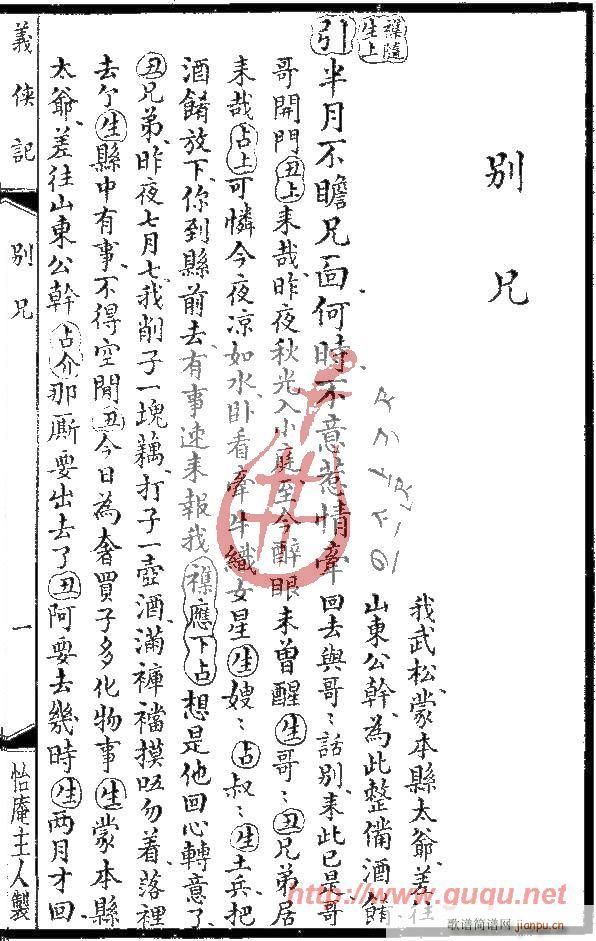 別兄
我武松蒙本縣太爺差往
山東公幹為此整備酒餚
雜隨生上
引半月不瞻兄面何時不意惹情牽回去與哥〻話別來此已是哥
哥開門丑上來哉昨夜秋光入小庭至今醉眼未曾醒生哥〻丑兄弟居
來哉占上可憐今夜凉如水卧看牽牛織女星生嫂〻占叔〻生土兵把
酒餚放下你到縣前去有事速來報我雜應下占想是他回心轉意了
丑兄弟昨夜七月七我削子一塊藕打子一壺酒滿褲襠摸呒勿着落裡
去个生縣中有事不得空閒丑今日為奢買子多化物事生蒙本縣
太爺差往山東公幹占介那厮要出去了丑阿要去幾時生兩月才回
義俠記
別兄
一
怡庵主人製
http://www.guqu.net
歌谱简谱网
jianpu.cn